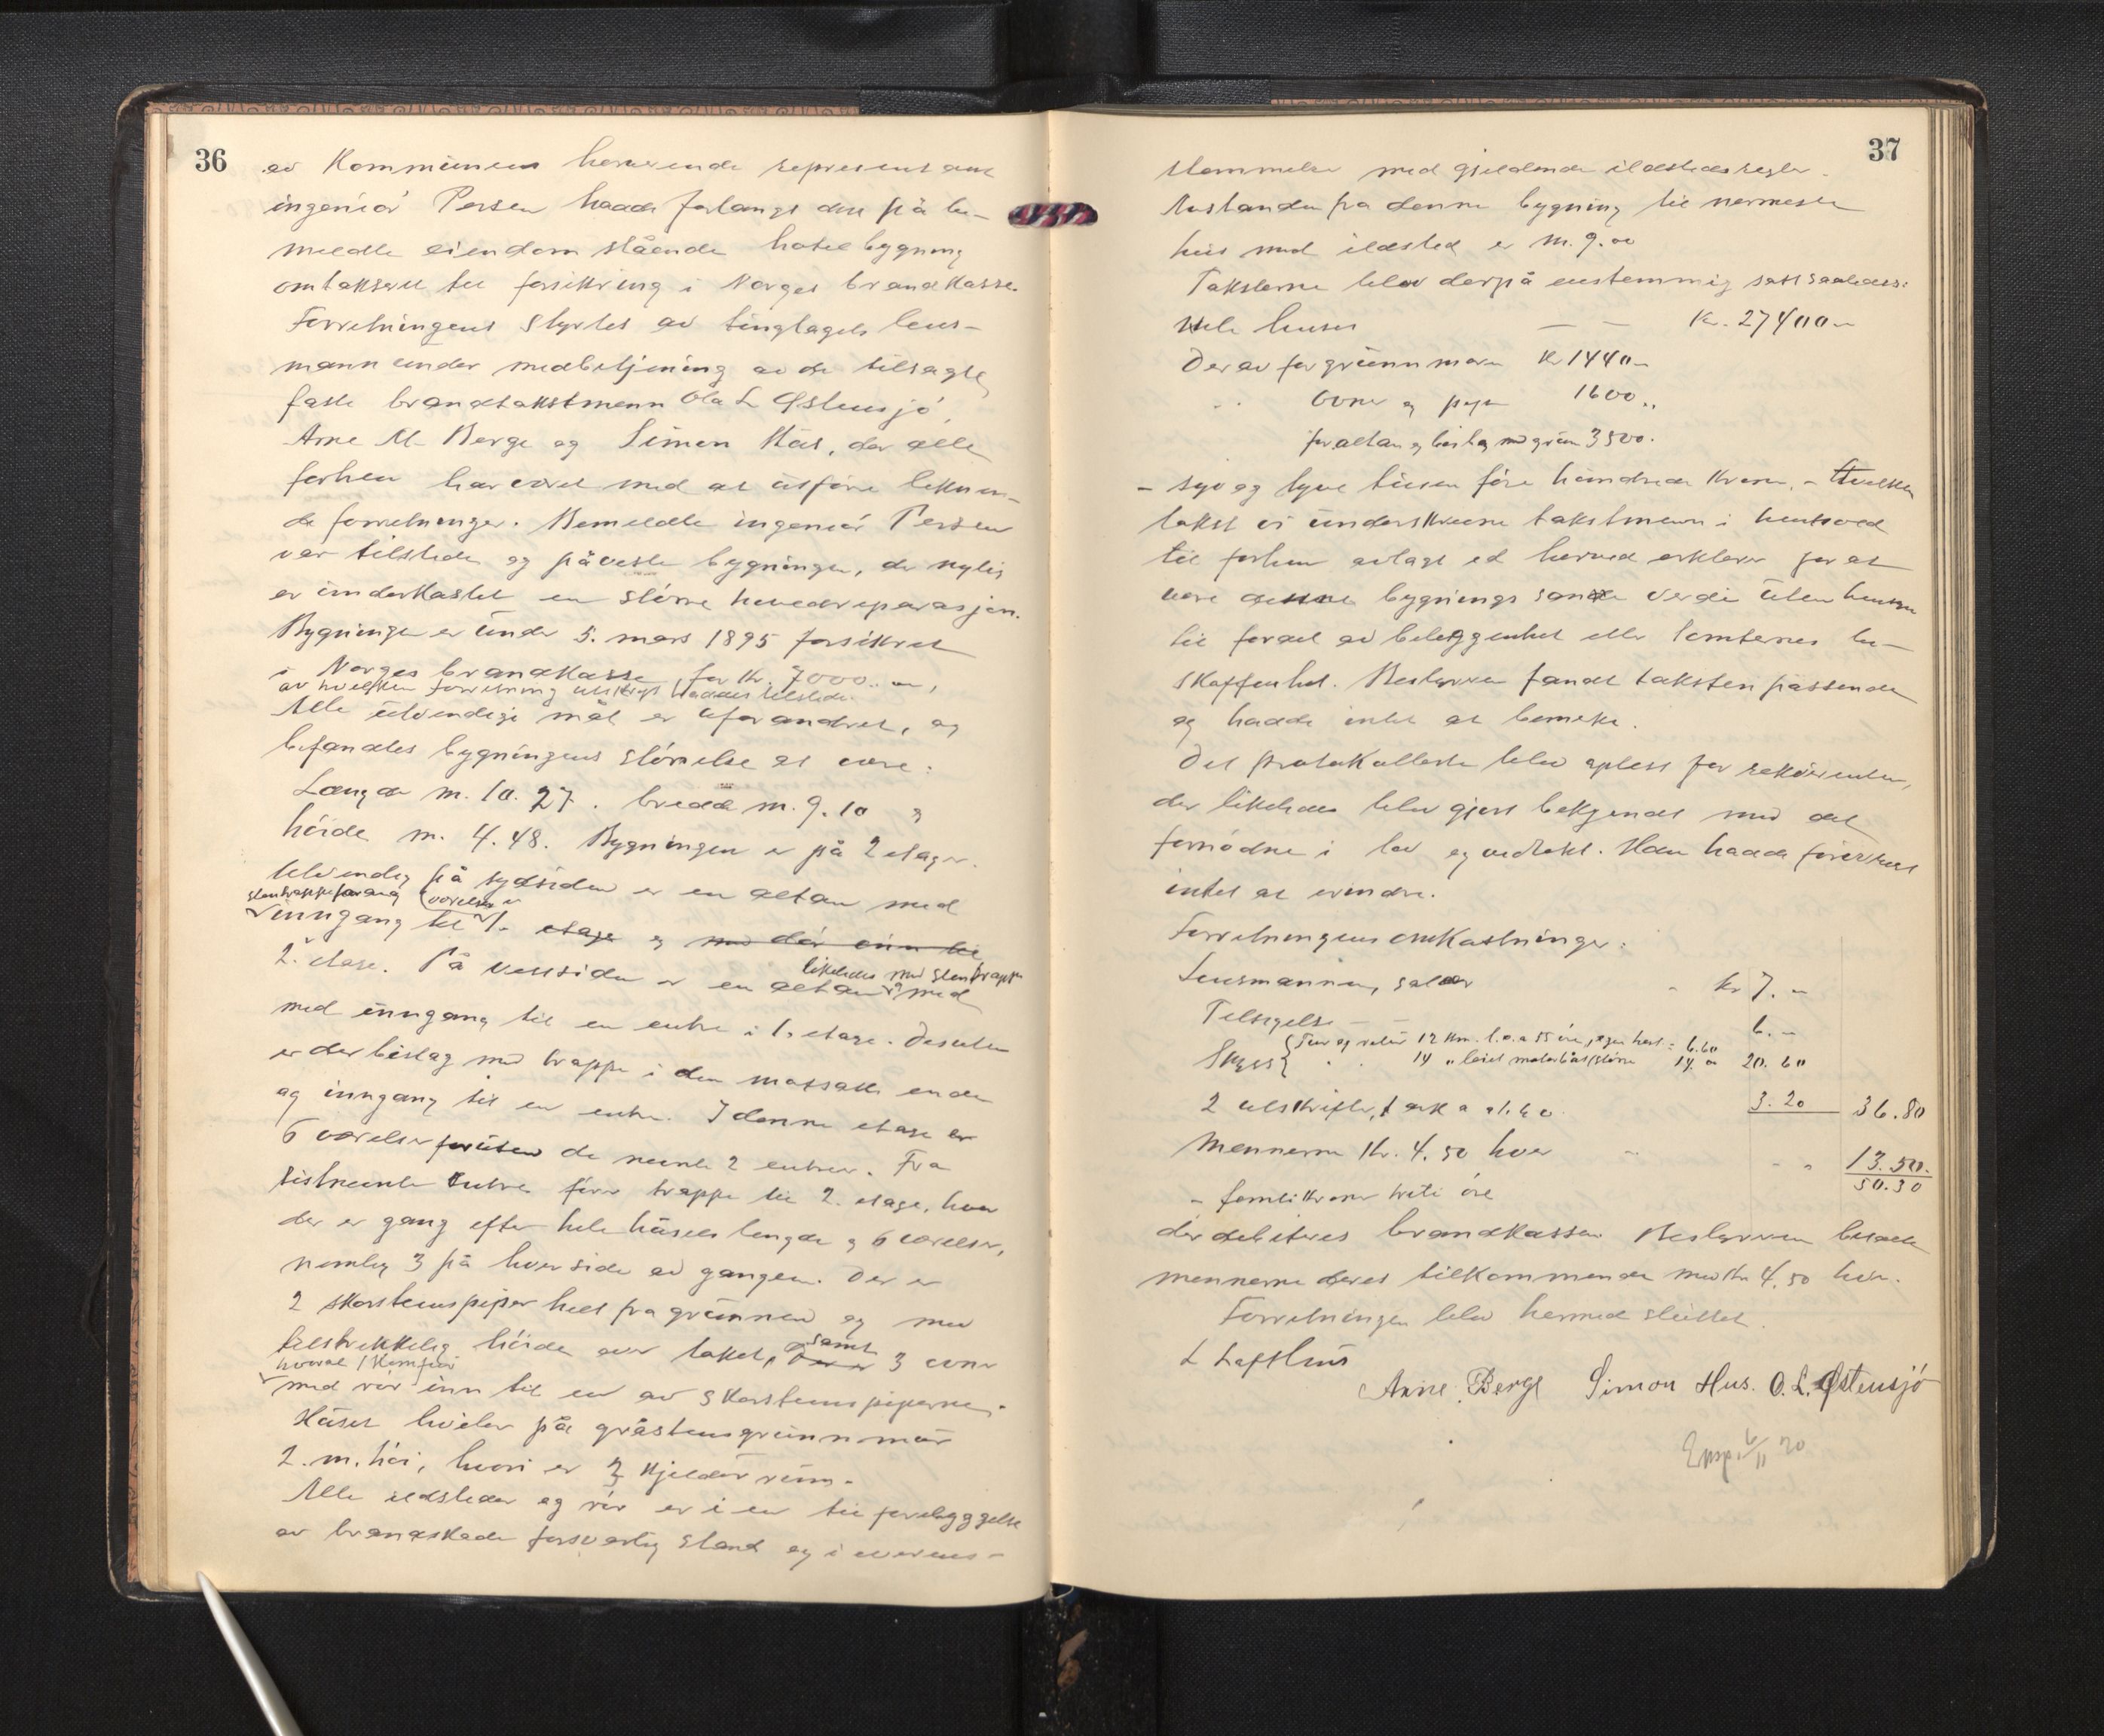 36
av Kommunens herværende representant
ingeniør Persen hadde forlangt den på be-
meldte eiendom stående hotelbygning
omtaksert til forsikring i Norges brandkasse.
Forretningens styrtes av tinglagets lens-
mann under medbetjening av de tilsagte
faste brandtakstmenn Ola L Østensjö,
Arne M Berge og Simon Hus, der alle
forhen har været med at utføre liknen-
de forretninger. Bemeldte ingeniør Persen
var tilstede og påviste bygningen, der nylig
er underkastet en større hovedreparasjon.
Bygningen er under 5. mars 1895 forsikret
i Norges brandkasse for Kr. 7000.-,
av hvilken forretning utskrift haddes tilstede.
Alle utvendige mål er uforandret, og
befandtes bygningens størrelse at være:
Længde m. 10.27. bredd m. 9.10 og
höide m. 4.48. Bygningen er på 2 etager.
Utvendig på sydsiden er en altan med
stentrappe foran og værelser
inngang til 1. etage og med dör inn til
2. etage. På vestsiden er en altan med
likeledes med stentrappe
med inngang til en entre i 1. etage. Desuten
er der bislag med trappe i den motsatte ende
og inngang til en entre. I denne etage er
6 værelser foruten de nevnte 2 entreer. Fra
sistnevnte entre förer trappe til 2. etage, hvor
der er gang efter hele husets lengde og 6 værelser,
nemlig 3 på hver side av gangen. Der er
2 skorstenspiper helt fra grunnen og med
tilstrekkelig höide over taket, samt 3 ovne
hvorav 1 Komfur
med rör inn til en av skorstenspiperne.
Huset hviler på gråstensgrunnmur
2. m. höi, hvori er 2 kjelderrum.
Alle ildsteder og rör er i en til forebyggelse
av brandskade forsvarlig stand og i overens-
37
stemmelse med gjeldende ildstedsregler.
Avstanden fra denne bygning til nermeste
hus med ildsted er m. 9.00
Taksterne blev derpå enstemmig satt saaledes:
Hele huset — — Kr. 27400.-
Derav for grunnmuren Kr 1440.-
" " Ovne og piper 1600..
for altan og bislag med grun 3500.
- syv og tyve tusen fire hundrede kroner, - Hvilken
takst vi underskrevne takstmenn i henhold
til forhen avlagt ed herved erklærer for at
være denne bygnings sande verdi uten hensyn
til fordel av beleggenhet eller tomternes be-
skaffenhet. Bestyreren fandt taksten passende
og hadde intet at bemerke.
Det protokollerte blev oplest for rekvirenten,
der likeledes blev gjort bekjendt med det
fornödne i lov og vedtekt. Han hadde forövrig
intet at erindre.
Forretningens omkostninger:
Lensmannen, salær " Kr 7.-
Tilsigelse — — 6.-
Skyss { Tur og retur 12 Km. l.v. a 55 öre, egen hest = 6.60
" " 14 " leiet motorbåt större 14.00 20.60
2 utskrifter, 1 ark a 1.60 3.20 36.80
Mennerne Kr. 4.50 hver " " " 13.50.
50.30
- femti kroner treti öre
der debiteres brandkassen. Bestyreren betalte
mennerne deres tilkommende med Kr 4.50 hver.
Forretningen blev hermed sluttet.
L Lofthus
Arne Berge Simon Hus. O. L. Østensjö
Exp. 6/11 20